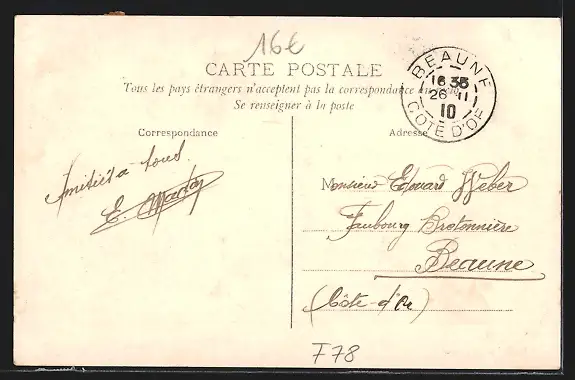 16€
CARTE POSTALE
Tous les pays étrangers n'acceptent pas la correspondance au recto
Se renseigner à la poste
BEAUNE
16 35
26 - 11
10
COTE D'OR
Correspondance
Adresse
Amitiés à tous
E.
Monsieur Edouard Weber
Faubourg Bretonnière
Beaune
(Côte-d'Or)
F78